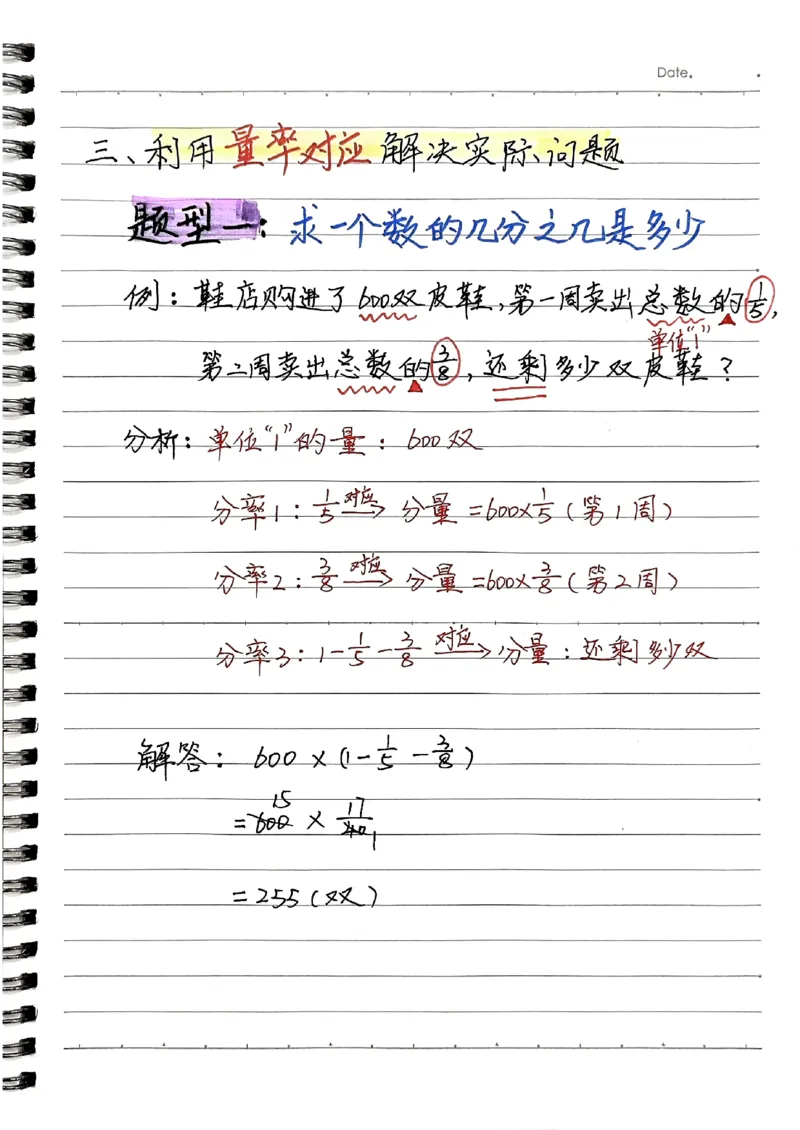 Date.
三、利用量率对应解决实际问题
题型一：求一个数的几分之几是多少
例：鞋店购进了600双皮鞋，第一周卖出总数的1/5，
单位“1”
第二周卖出总数的3/8，还剩多少双皮鞋？
分析：单位“1”的量：600双
分率1：1/5 对应→ 分量=600×1/5（第1周）
分率2：3/8 对应→ 分量=600×3/8（第2周）
分率3：1-1/5-3/8 对应→ 分量：还剩多少双
解答：600×(1-1/5-3/8)
15
=600×17/40 1
=255（双）